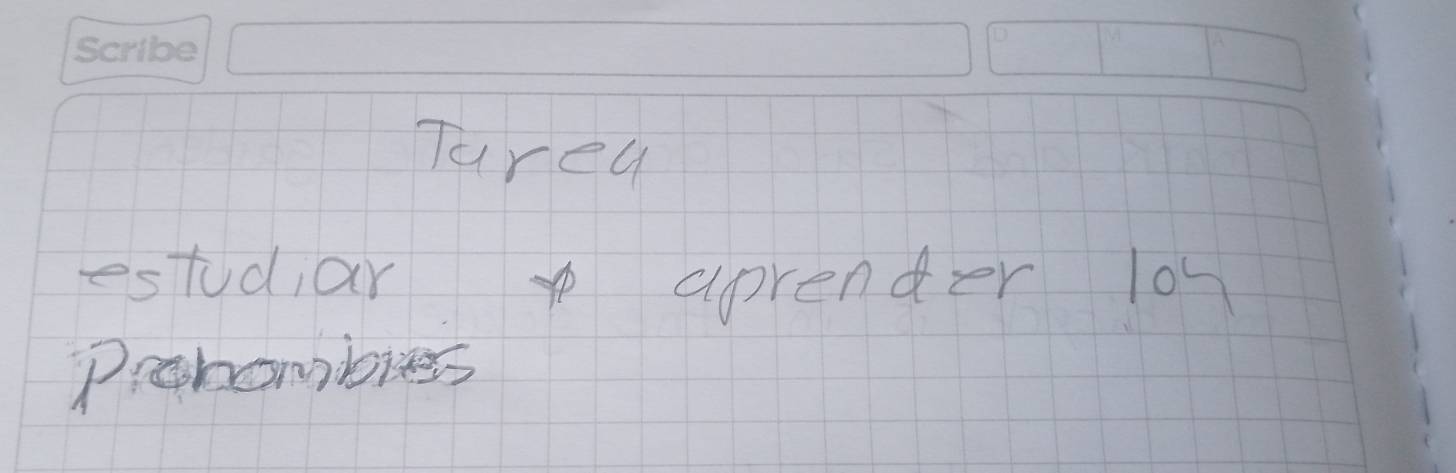 Scribe
D M A
Tarea
estudiar aprender los
Pronombres